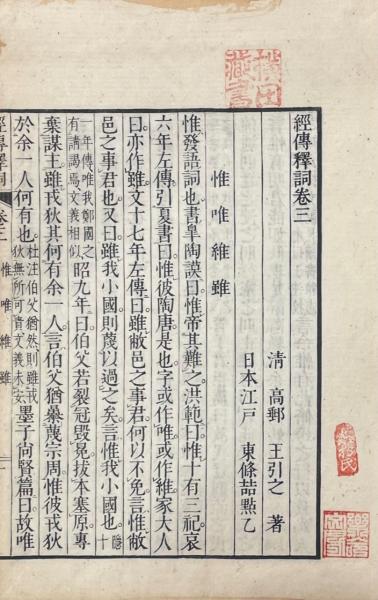 經傳釋詞卷三
清 高郵 王引之 著
日本江戶 東條喆點乙
惟 唯 維 雖
惟發語詞也書皐陶謨曰惟帝其難之洪範曰惟十有三祀哀
六年左傳引夏書曰惟彼陶唐是也字或作唯或作維家大人
曰亦作雖文十七年左傳曰雖敝邑之事君何以不免言惟敝
邑之事君也又曰雖我小國則蔑以過之矣言惟我小國也
十一年傳唯我鄭國之
有請謁焉文義相似
昭九年曰伯父若裂冠毀冕拔本塞原專
棄謀主雖戎狄其何有余一人言伯父猶蔑宗周惟彼戎狄
於余一人何有也
杜注伯父猶然則雖
狄無所可責文義未安
墨子尚賢篇曰故唯
經傳釋詞 卷三 惟 唯 維 雖 一